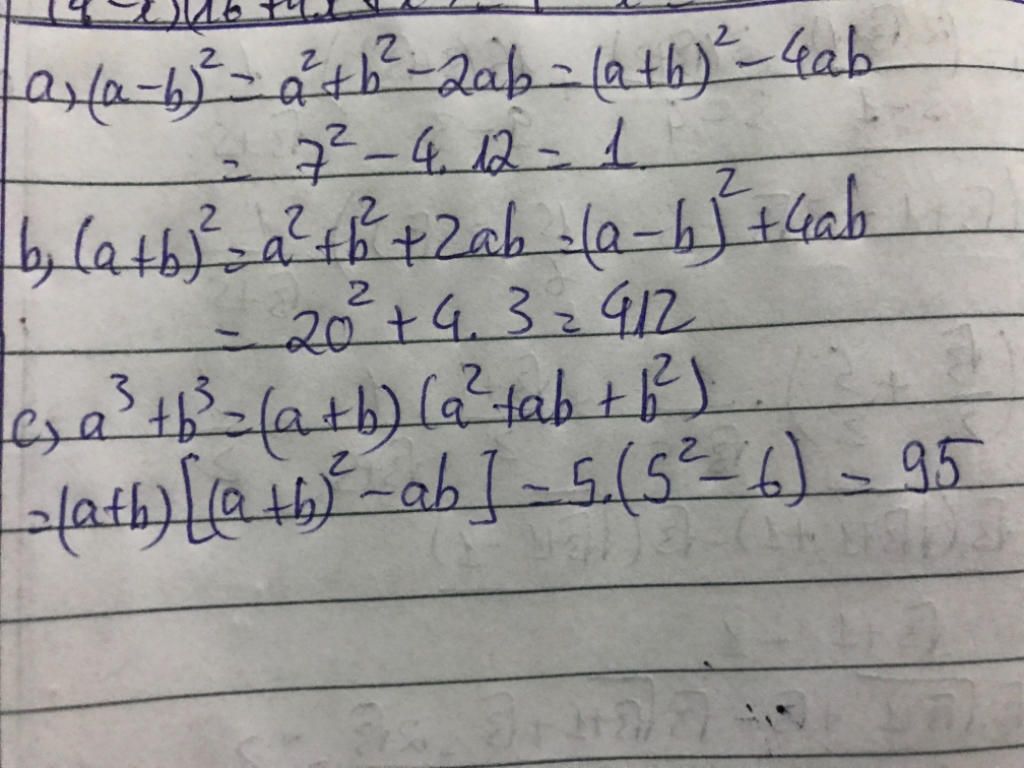 a, (a-b)² = a² + b² - 2ab = (a+b)² - 4ab
= 7² - 4.12 = 1
b, (a+b)² = a² + b² + 2ab = (a-b)² + 4ab
= 20² + 4.3 = 412
c, a³ + b³ = (a+b)(a² + ab + b²)
= (a+b)[(a+b)² - ab] = 5.(5² - 6) = 95